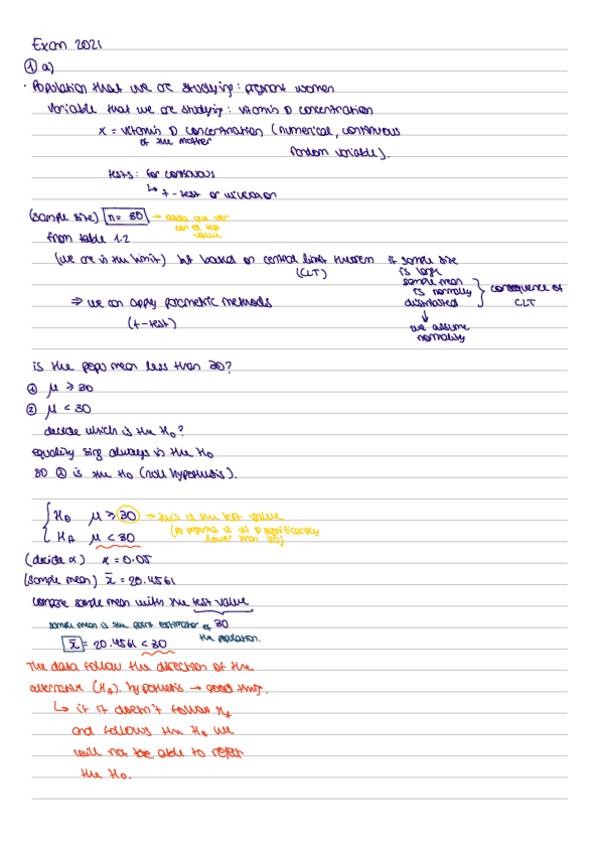 Exam 2021
① a)
· Population that we are studying: pregnant women
Variable that we are studying: vitamin D concentration
X = vitamin D concentration (numerical, continuous
of the mother
random variable).
tests: for continuous
↳ t-test or wilcoxon
(sample size) n = 80 → nada que ver
con el test
value
from table 1.2
(we are in the limit) but based on central limit theorem
(CLT)
if sample size
is large
sample mean
is normally
distributed
↓
we assume
normality
consequence of
CLT
⇒ we can apply parametric methods
(t-test)
is the popu mean less than 30?
① μ ≥ 30
② μ < 30
decide which is the H₀?
equality sign always in the H₀
so ① is the H₀ (null hypothesis).
H₀ μ ≥ 30 → this is the test value
Hₐ μ < 30
lower than 30)
(decide α) α = 0.05
(sample mean) x̄ = 20.4561
compare sample mean with the test value
30
sample mean is the point estimator of
the population.
x̄ = 20.4561 < 30
The data follow the direction of the
alternative (Hₐ) hypothesis → good thing.
↳ if it doesn't follow Hₐ
and follows the H₀ we
will not be able to reject
the H₀.